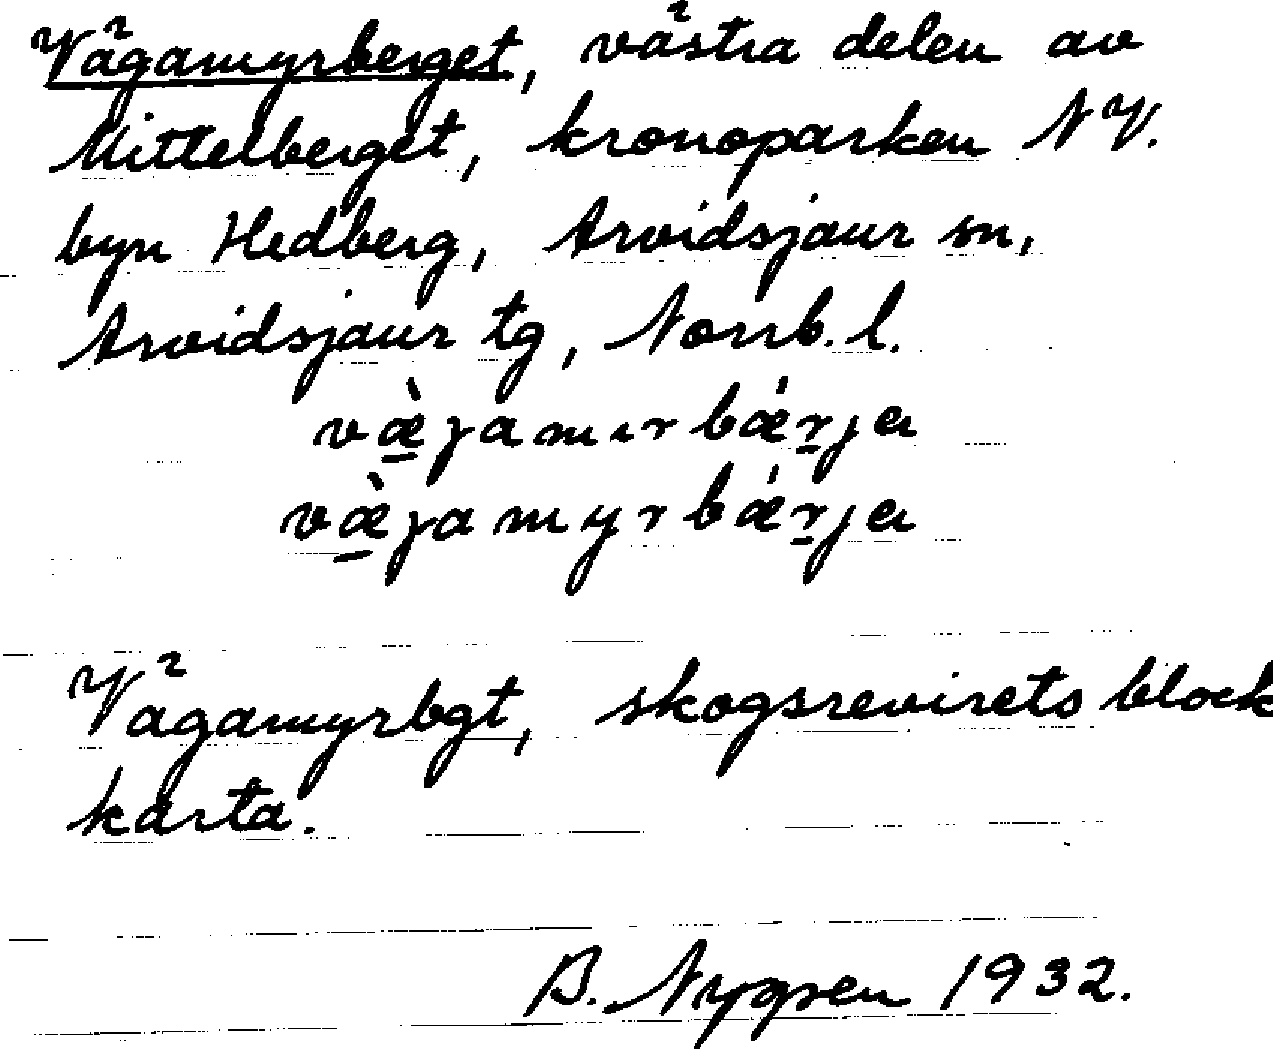 Vägamyrberget, västra delen av
Mittelberget, kronoparken NV.
byn Hedberg, Arvidsjaur sn,
Arvidsjaur tg, Norrb. l.
væ̀gamırbǽrja
væ̀gamyrbǽrja
Vägamyrbgt, skogsrevirets block
karta.
B. Nygren 1932.